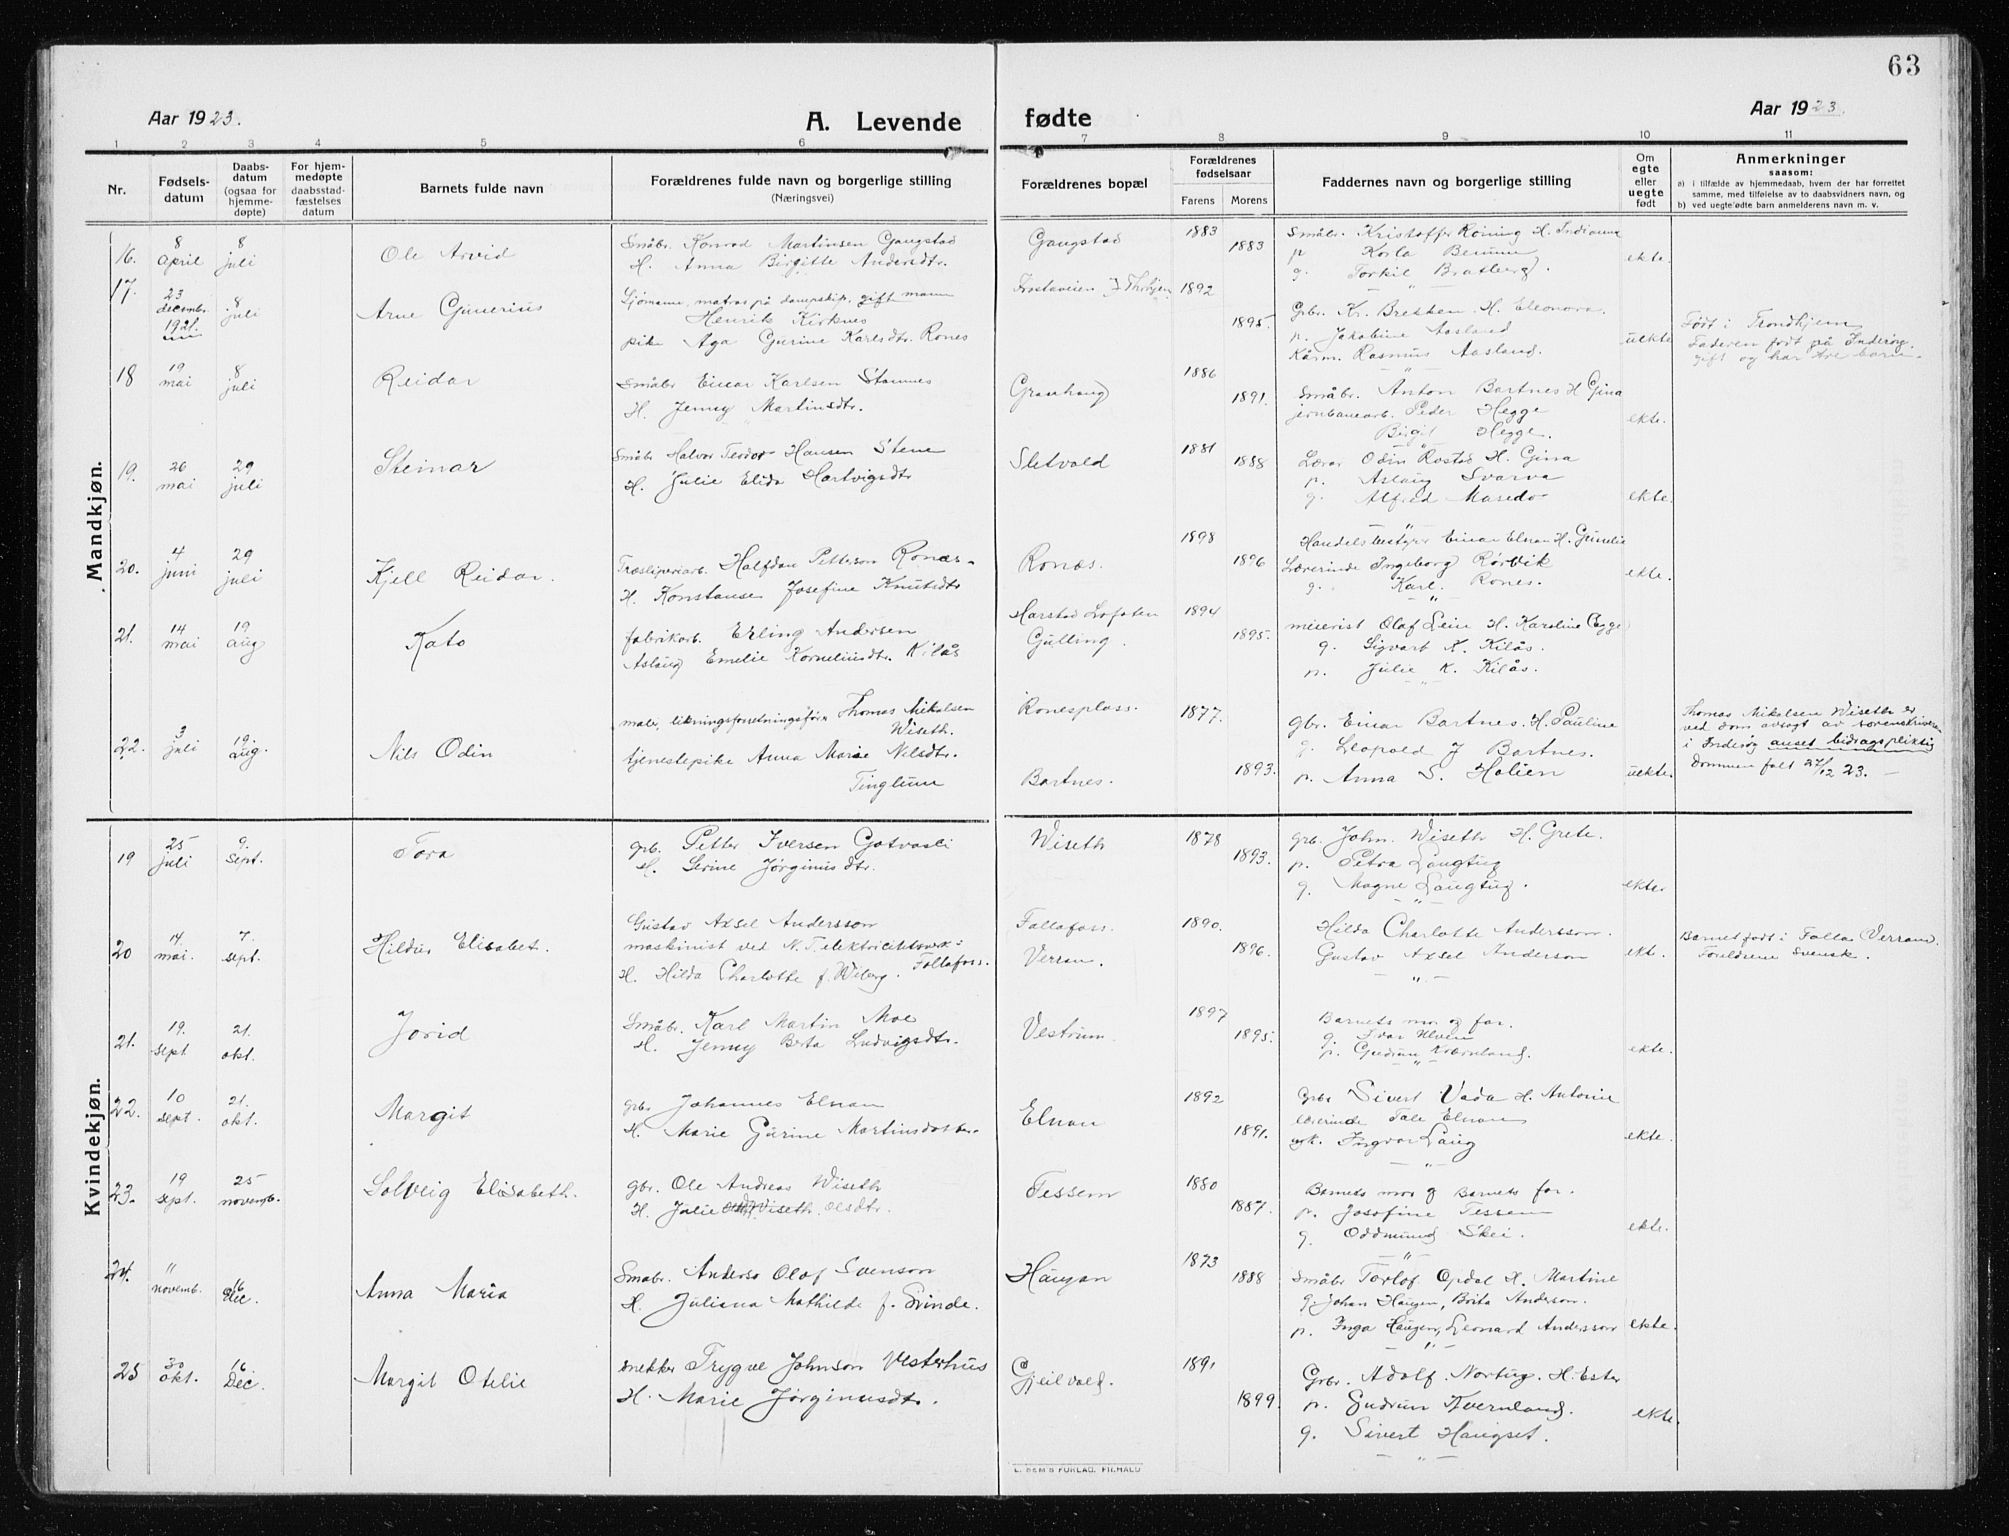 63
Aar 1923.
A. Levende
fødte
Aar 1923.
1 2 3 4 5 6 7 8 9 10 11
Nr.
Fødsels-
datum
Daabs-
datum
(ogsaa for
hjemme-
døpte)
For hjem-
medøpte
daabsstad-
fæstelses
datum
Barnets fulde navn
Forældrenes fulde navn og borgerlige stilling
(Næringsvei)
Forældrenes bopæl
Forældrenes
fødselsaar
Farens Morens
Faddernes navn og borgerlige stilling
Om
egte
eller
uegte
født
Anmerkninger
saasom:
a) i tilfælde av hjemmedaab, hvem der har forrettet
samme, med tilføielse av to daabsvidners navn, og
b) ved uegtefødte barn anmelderens navn m. v.
Mandkjøn.
16. 8 april 8 juli Ole Arvid
Småbr. Konrad Martinsen Gangstad
H. Anna Birgitte Andersdtr.
Gangstad 1883 1883
Småbr. Kristoffer Röning H. Indianna
p Karla
g. Torkil Bratberg.
ekte.
17. 23 decembr. 1921. 8 juli Arne Gunerius
Sjömann, matros på dampskip, gift mann
Henrik Kirknes
pike Aga Gurine Karlsdtr. Rones
1892 1895.
Grbr. Kr. Bretten H. Eleonora.
p. Jakobine Aasland
Kårm. Rasmus Aasland.
uekte
Født i Trondhjem
Faderen født på Inderøy.
gift og har tre barn.
18 19 mai 8 juli Reidar
Småbr Einar Karlsen Stamnes
H. Jenny Martinsdtr.
Granhaug 1886 1891.
Småbr. Anton Bartnes H Gina
jernbanearb. Peder Hegge
Birgit Hegge.
ekte.
19. 26 mai 29 juli Steinar
Småbr Halvor Teodor Hansen Stene
H. Julie Elida Hartvigsdtr
Sletvold 1881 1888
Lærer Odin Rostad H. Gina
p. Aslaug Svarva
g. Alfred
ekte.
20. 4 juni 29 juli Kjell Reidar.
Træsliperiarb. Halfdan Petterson Ronæs.
H. Konstanse Josefine Knutsdtr
Ronæs. 1898 1896
Handelsbestyrer Einar Elnan H. Gunelie
Lærerinde Ingeborg Rørvik
g. Karl. Rones.
ekte.
21. 14 mai 19 aug Kato
fabrikarb. Erling Andersen
Aslaug Emelie Korneliusdtr. Kilås
Harstad Lofoten
Gulling. 1894 1895.
meierist Olaf Lein H. Karoline
g. Sigvart K. Kilås.
p. Julie K. Kilås.
22. 3 juli 19. aug. Nils Odin
maler, likningsforretningsfører Thomas Mikalsen
Wiseth.
tjenestepike Anna Marie Nilsdtr.
Tinglum
Ronesplass. 1877.
Bartnes. 1893.
gbr. Einar Bartnes. H. Pauline
g. Leopold J Bartnes.
p. Anna S. Holien
uekte.
Thomas Mikalsen Wiseth er
ved dom avsagt av sorenskriveren
i Inderøy anset bidragspliktig
Dommen falt 27/12 23. —
Kvindekjøn.
19 25 juli 9. sept. Tora
grb. Petter Iversen Gotvasli
H. Serine Jørginusdtr.
Wiseth 1878 1893.
grb. John Wiseth H. Grete.
p. Petra Langtug
g. Magne Langtug.
ekte.
20 14. mai. 7. sept. Hildur Elisabet.
Gustav Axsel Andersson
maskinist ved N. T. elektricitetsverk:
H. Hilda Charlotte f. Weberg. Follafoss.
Follafoss.
Verran. 1890. 1896.
Hilda Charlotte Andersson.
Gustav Axsel Anderson
— " —
ekt.
Barnet født i Folla Verran.
Foreldrene svensk.
21. 19. sept 21. okt. Jorid
Småbr. Karl Martin Moe
H. Jenny Berta Ludvigsdtr.
Vestrum. 1897 1895.
Barnets mor og far.
g. Ivar Ulven
p. Gudrun Kvernland.
ekte.
22. 10 sept. 21. okt. Margit
grbr Johannes Elnan
H. Marie Gurine Martinsdatter.
Elnan 1892 1891.
Grbr Sivert Vada H. Antonie
lærerinde Tale Elnan
Ingvar Laug
— " —
ekte.
23. 19 sept. 25 novemb. Solveig Elisabeth.
gbr. Ole Andreas Wiseth
H. Julie Wiseth, Olsdtr.
Tessem 1880 1887.
Barnets mor og Barnets far.
p. Josefine Tessem
g. Oddmund Skei.
— " —
ekte.
24. 11 novemb. 16 Dec. Anna Maria
Småbr. Anders Olof Svenson
H. Juliana Mathilde f. Svinde.
Haugan 1873 1888
Småbr Torlof Opdal H. Martine
g. Johan Haugen, Brita Anderson.
p. Inga Haugen, Leonard Andersson
— " —
ekte.
25 30 okt. 16 Dec. Margit Otelie
snekker Trygve Johnson Vesterhus
H. Marie Jørginusdtr.
Gjeilvold. 1891 1899.
Grbr. Adolf Nortug. H. Ester
p. Gudrun Kvernland.
g. Sivert Haugset.
— " —
ekte.